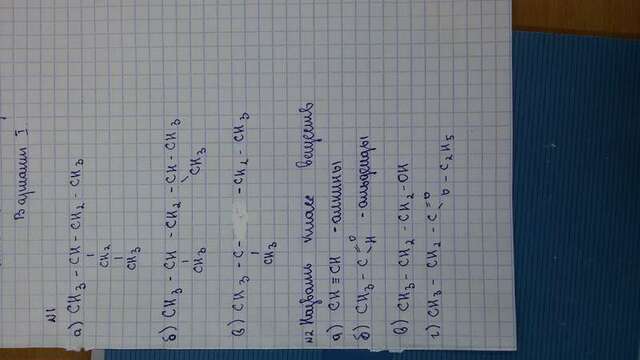 Вариант I.
№1
а) CH3 - CH - CH2 - CH3
CH2
CH3
б) CH3 - CH - CH2 - CH - CH3
CH3 CH3
в) CH3 - C - - CH2 - CH3
CH3
№2 Назвать класс веществ
а) CH ≡ CH - алкины
б) CH3 - C =O - альдегиды
H
в) CH3 - CH2 - CH2 - OH
г) CH3 - CH2 - C =O
O - C2H5